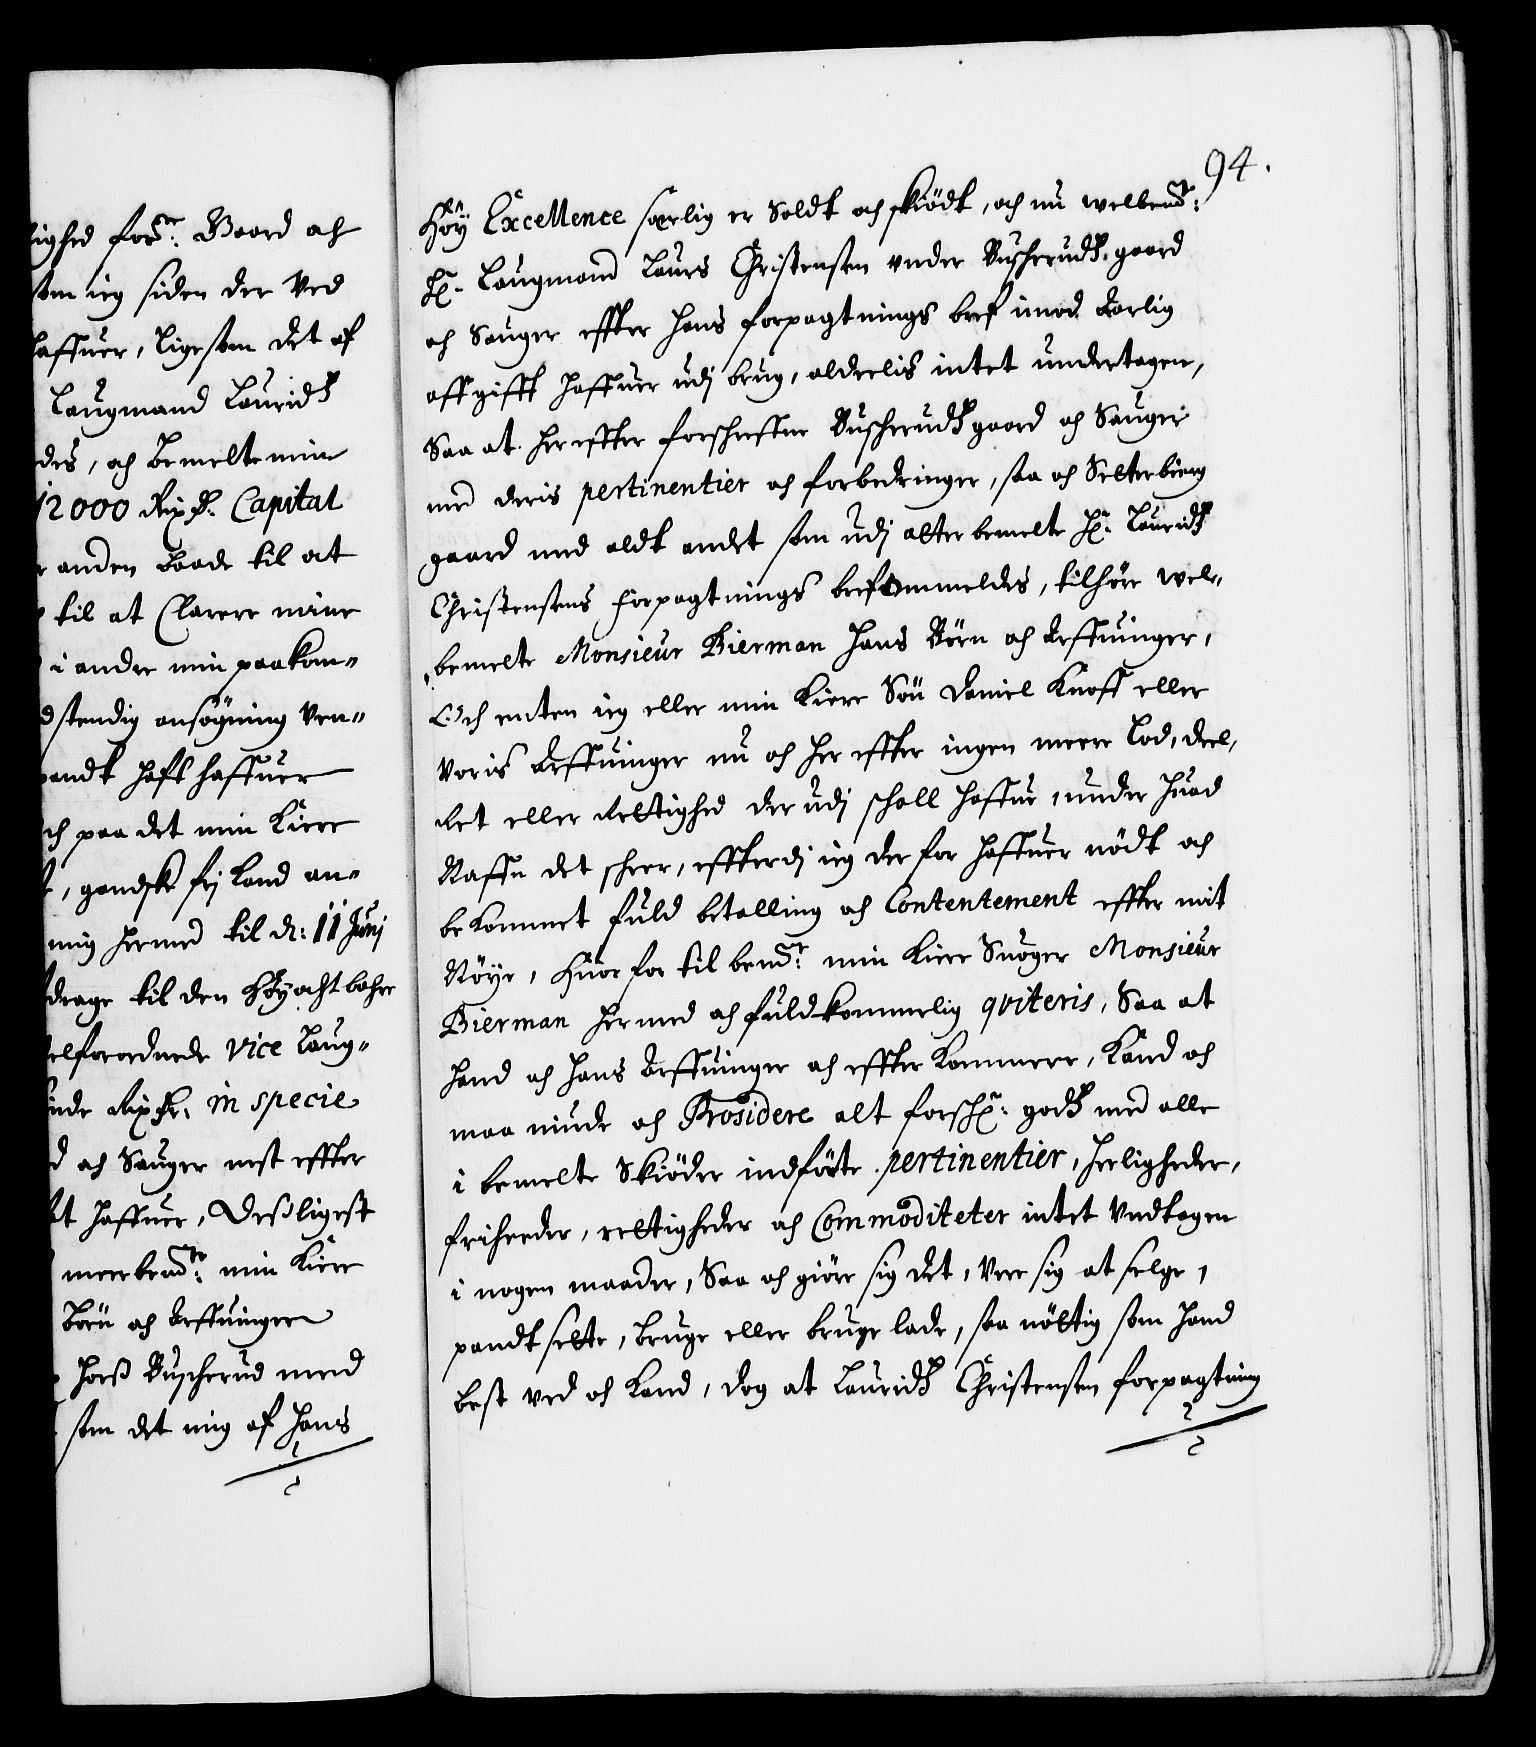 ighed for^de: Gaard och
som ieg siden der Ved
haffuer, Ligesom det af
Laugmand Lauridtz
des, och bemelte min
12000 Rixdr. Capital
anden baade til at
til at Clarere mine
i andre min paakom=
dstendig ansögning Ven=
pandt haft haffuer
ch paa det min Kiere
, gandske frj Land an=
mig hermed til d: 11 Junj
drage til den Höyacht bahre
elforordnede Vice Laug=
nde Rixdr. in specie
d och Sauger nest effter
t haffuer, Desligest
meerbem^te: min Kiere
Börn och Arffuinger
horß Buscherud med
som det mig af Hans
94.
Höy Excellence særlig er Soldt och skiödt, och nu welbem^te:
Hr. Laugmand Laurs Christensen under Buscherudtz gaard
och Sauger effter hans forpagtnings bref imod Aarlig
affgifft haffuer udj brug, alderlis intet undertagen,
Saa at her effter forschreffne Buscherudtz gaard och Sauger
med deris pertinentier och forbedringer, saa och Selterbierg
gaard med aldt andet som udj after bemelte Hr. Lauridtz
Christensens forpagtnings bref ommeldes, tilhöre wel=
bemelte Monsieur Bierman hans Börn och Arffuinger,
Och enten ieg eller min Kiere Sön Daniel Knoff eller
Voris Arffuinger nu och her effter ingen meere Lod, deel,
Ret eller Rettighed der udj schall haffue, under huad
Naffn det scheer, effterdj ieg der for haffuer nödt och
bekommet fuld betalling och Contentement effter mit
Nöye, Huor for til bem^te: min Kiere Suoger Monsieur
Bierman hermed och fuldkommelig qviteris, Saa at
hand och hans Arffuinger och effter Kommere, Kand och
maa niude och Prosidere alt forschr: godtz med alle
i bemelte Skiöder indförte pertinentier, Herligheder,
friheeder, rettigheder och Commoditeter intet Undtagen
i nogen maader, Saa och giöre sig det, Vere sig at selge,
pandt sette, bruge eller bruge lade, saa nöttig som hand
best ved och Kand, dog at Lauridtz Christensen forpagtning